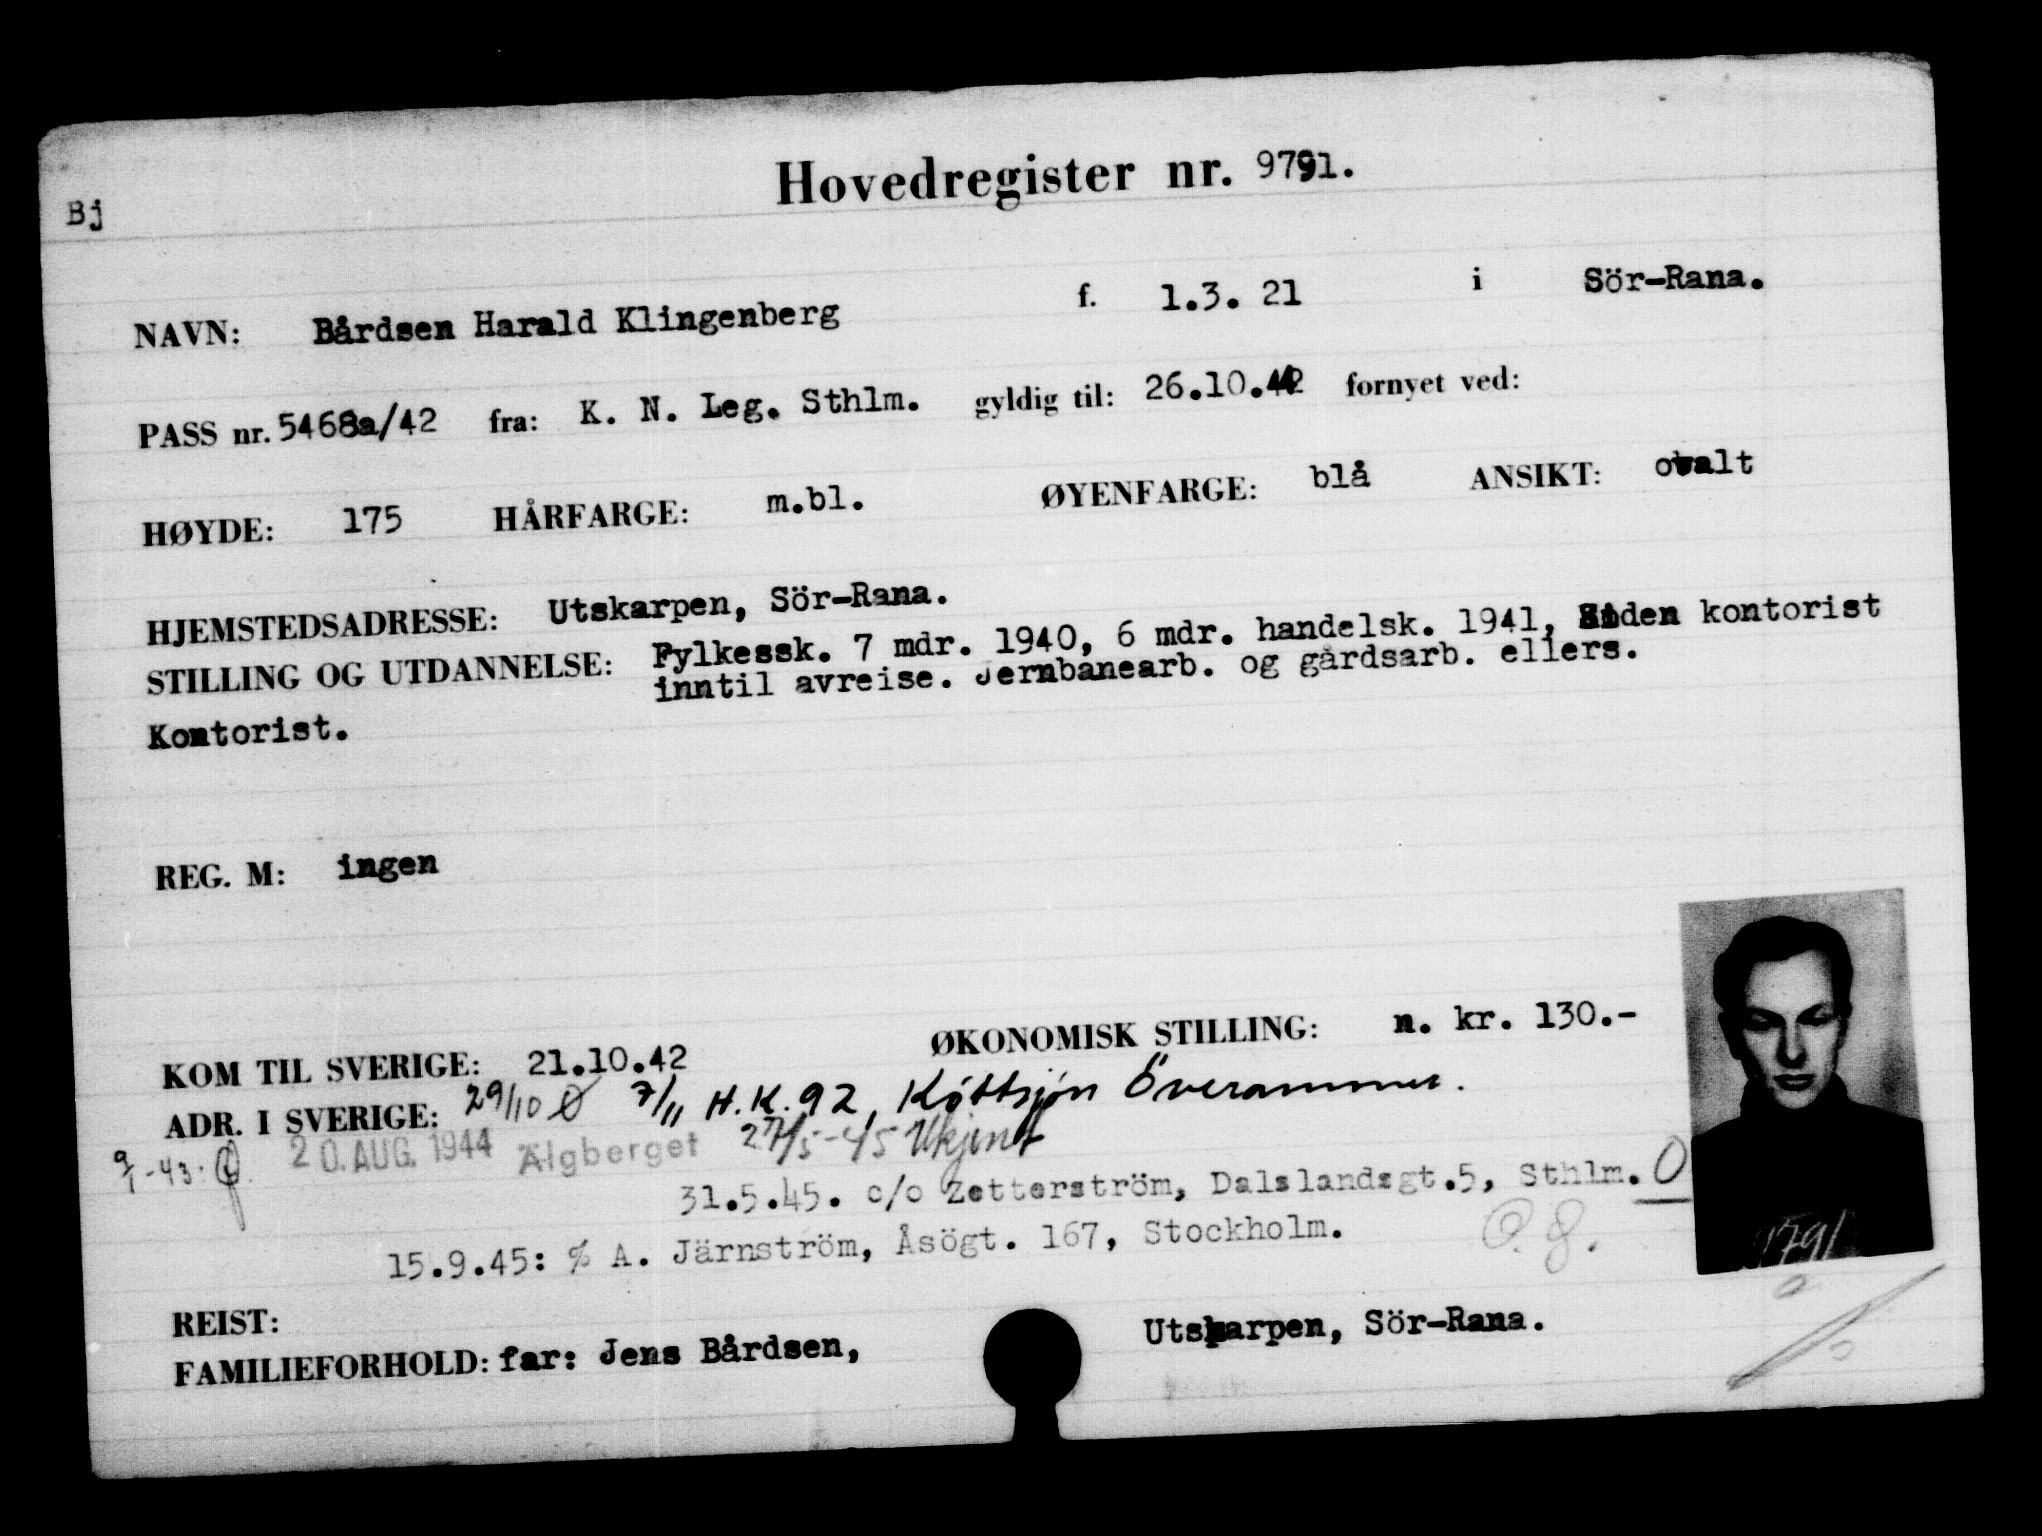 Bj
Hovedregister nr. 9791.
NAVN: Bårdsen Harald Klingenberg f. 1.3. 21 i Sör-Rana.
PASS nr. 5468a/42 fra: K. N. Leg. Sthlm. gyldig til: 26.10.42 fornyet ved:
HØYDE: 175 HÅRFARGE: m.bl. ØYENFARGE: blå ANSIKT: ovalt
HJEMSTEDSADRESSE: Utskarpen, Sör-Rana.
STILLING OG UTDANNELSE: Fylkessk. 7 mdr. 1940, 6 mdr. handelsk. 1941, Siden kontorist
inntil avreise. Jernbanearb. og gårdsarb. ellers.
Kontorist.
REG. M: ingen
KOM TIL SVERIGE: 21.10.42 ØKONOMISK STILLING: n. kr. 130.-
ADR. I SVERIGE: 29/10 Ø 7/11 H.K. 92, Köttsjön Överammer.
9/1-43. 20. AUG. 1944 Älgberget 27/5-45 Ukjent
31.5.45. c/o Zetterström, Dalslandsgt.5, Sthlm. O
15.9.45: c/o A. Järnström, Åsögt. 167, Stockholm.
9791
REIST:
FAMILIEFORHOLD: far: Jens Bårdsen, Utskarpen, Sör-Rana.